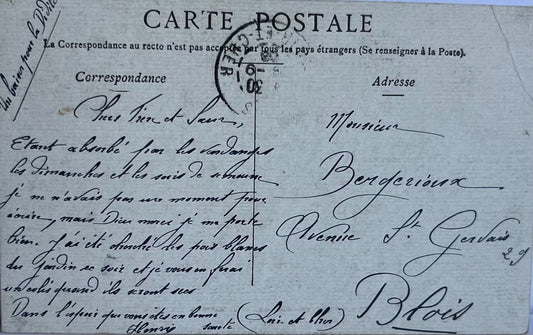 CARTE POSTALE
La Correspondance au recto n'est pas acceptée par tous les pays étrangers (Se renseigner à la Poste).
Correspondance
Chers Frère et Sœur,
Etant absorbé par les vendanges
les dimanches et les soirs de semaine
je ne n'avais pas une moment pour
écrire, mais Dieu merci je me porte
bien. J'ai été cherché les pois blancs
du jardin ce soir et je vous en ferai
un colis quand ils seront secs
Dans l'espoir que vous êtes en bonne
santé
Henri
Un baiser pour la
ET-CHER
30 -9
Adresse
Monsieur
Bergerioux
Avenue St Gervais
29
Blois
(Loir et Cher)